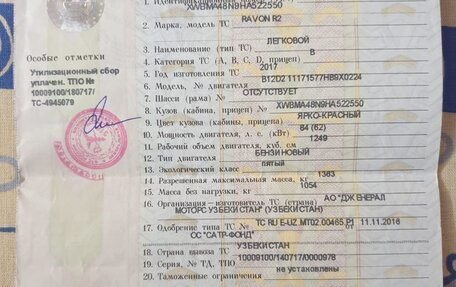 Особые отметки
Утилизационный сбор
уплачен. ТПО №
10009100/180717/
ТС-4945079
XWBMA48N9HA522550
2. Марка, модель ТС RAVON R2
ЛЕГКОВОЙ
3. Наименование (тип ТС)
4. Категория ТС (А, В, С, D, прицеп) B
5. Год изготовления ТС 2017
6. Модель, № двигателя B12D2 11171577HB9X0224
7. Шасси (рама) № ОТСУТСТВУЕТ
8. Кузов (кабина, прицеп) № XWBMA48N9HA522550
9. Цвет кузова (кабины, прицепа) ЯРКО-КРАСНЫЙ
10. Мощность двигателя, л. с. (кВт) 84 (62)
11. Рабочий объем двигателя, куб. см 1249
12. Тип двигателя БЕНЗИНОВЫЙ
13. Экологический класс пятый
14. Разрешенная максимальная масса, кг 1363
15. Масса без нагрузки, кг 1054
16. Организация-изготовитель ТС (страна) АО "ДЖЕНЕРАЛ
МОТОРС УЗБЕКИСТАН" (УЗБЕКИСТАН)
17. Одобрение типа ТС № ТС RU E-UZ.МТ02.00465.Р1 от 11.11.2016
ОС "САТР-ФОНД"
18. Страна вывоза ТС УЗБЕКИСТАН
19. Серия, № ТД, ТПО 10009100/140717/0000978
20. Таможенные ограничения не установлены